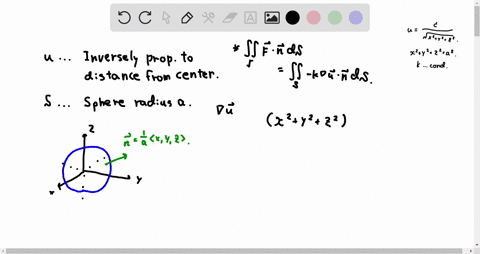 u ... Inversely prop. to
distance from center.
S ... Sphere radius a.
z
n⃗ = 1/a <x, y, z>.
y
x
* ∬_S F⃗ · n⃗ dS
= ∬_S -k∇u⃗ · n⃗ dS.
∇u⃗
(x² + y² + z²)
u = c / √(x²+y²+z²).
x²+y²+z²=a².
k ... cond.